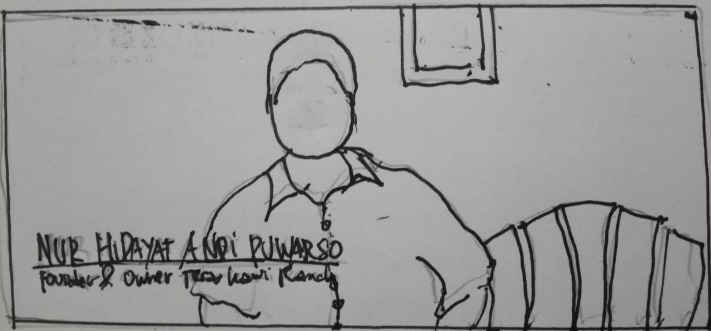 NUR HIDAYAT ANDI PUWARSO
Founder & Owner Ranch